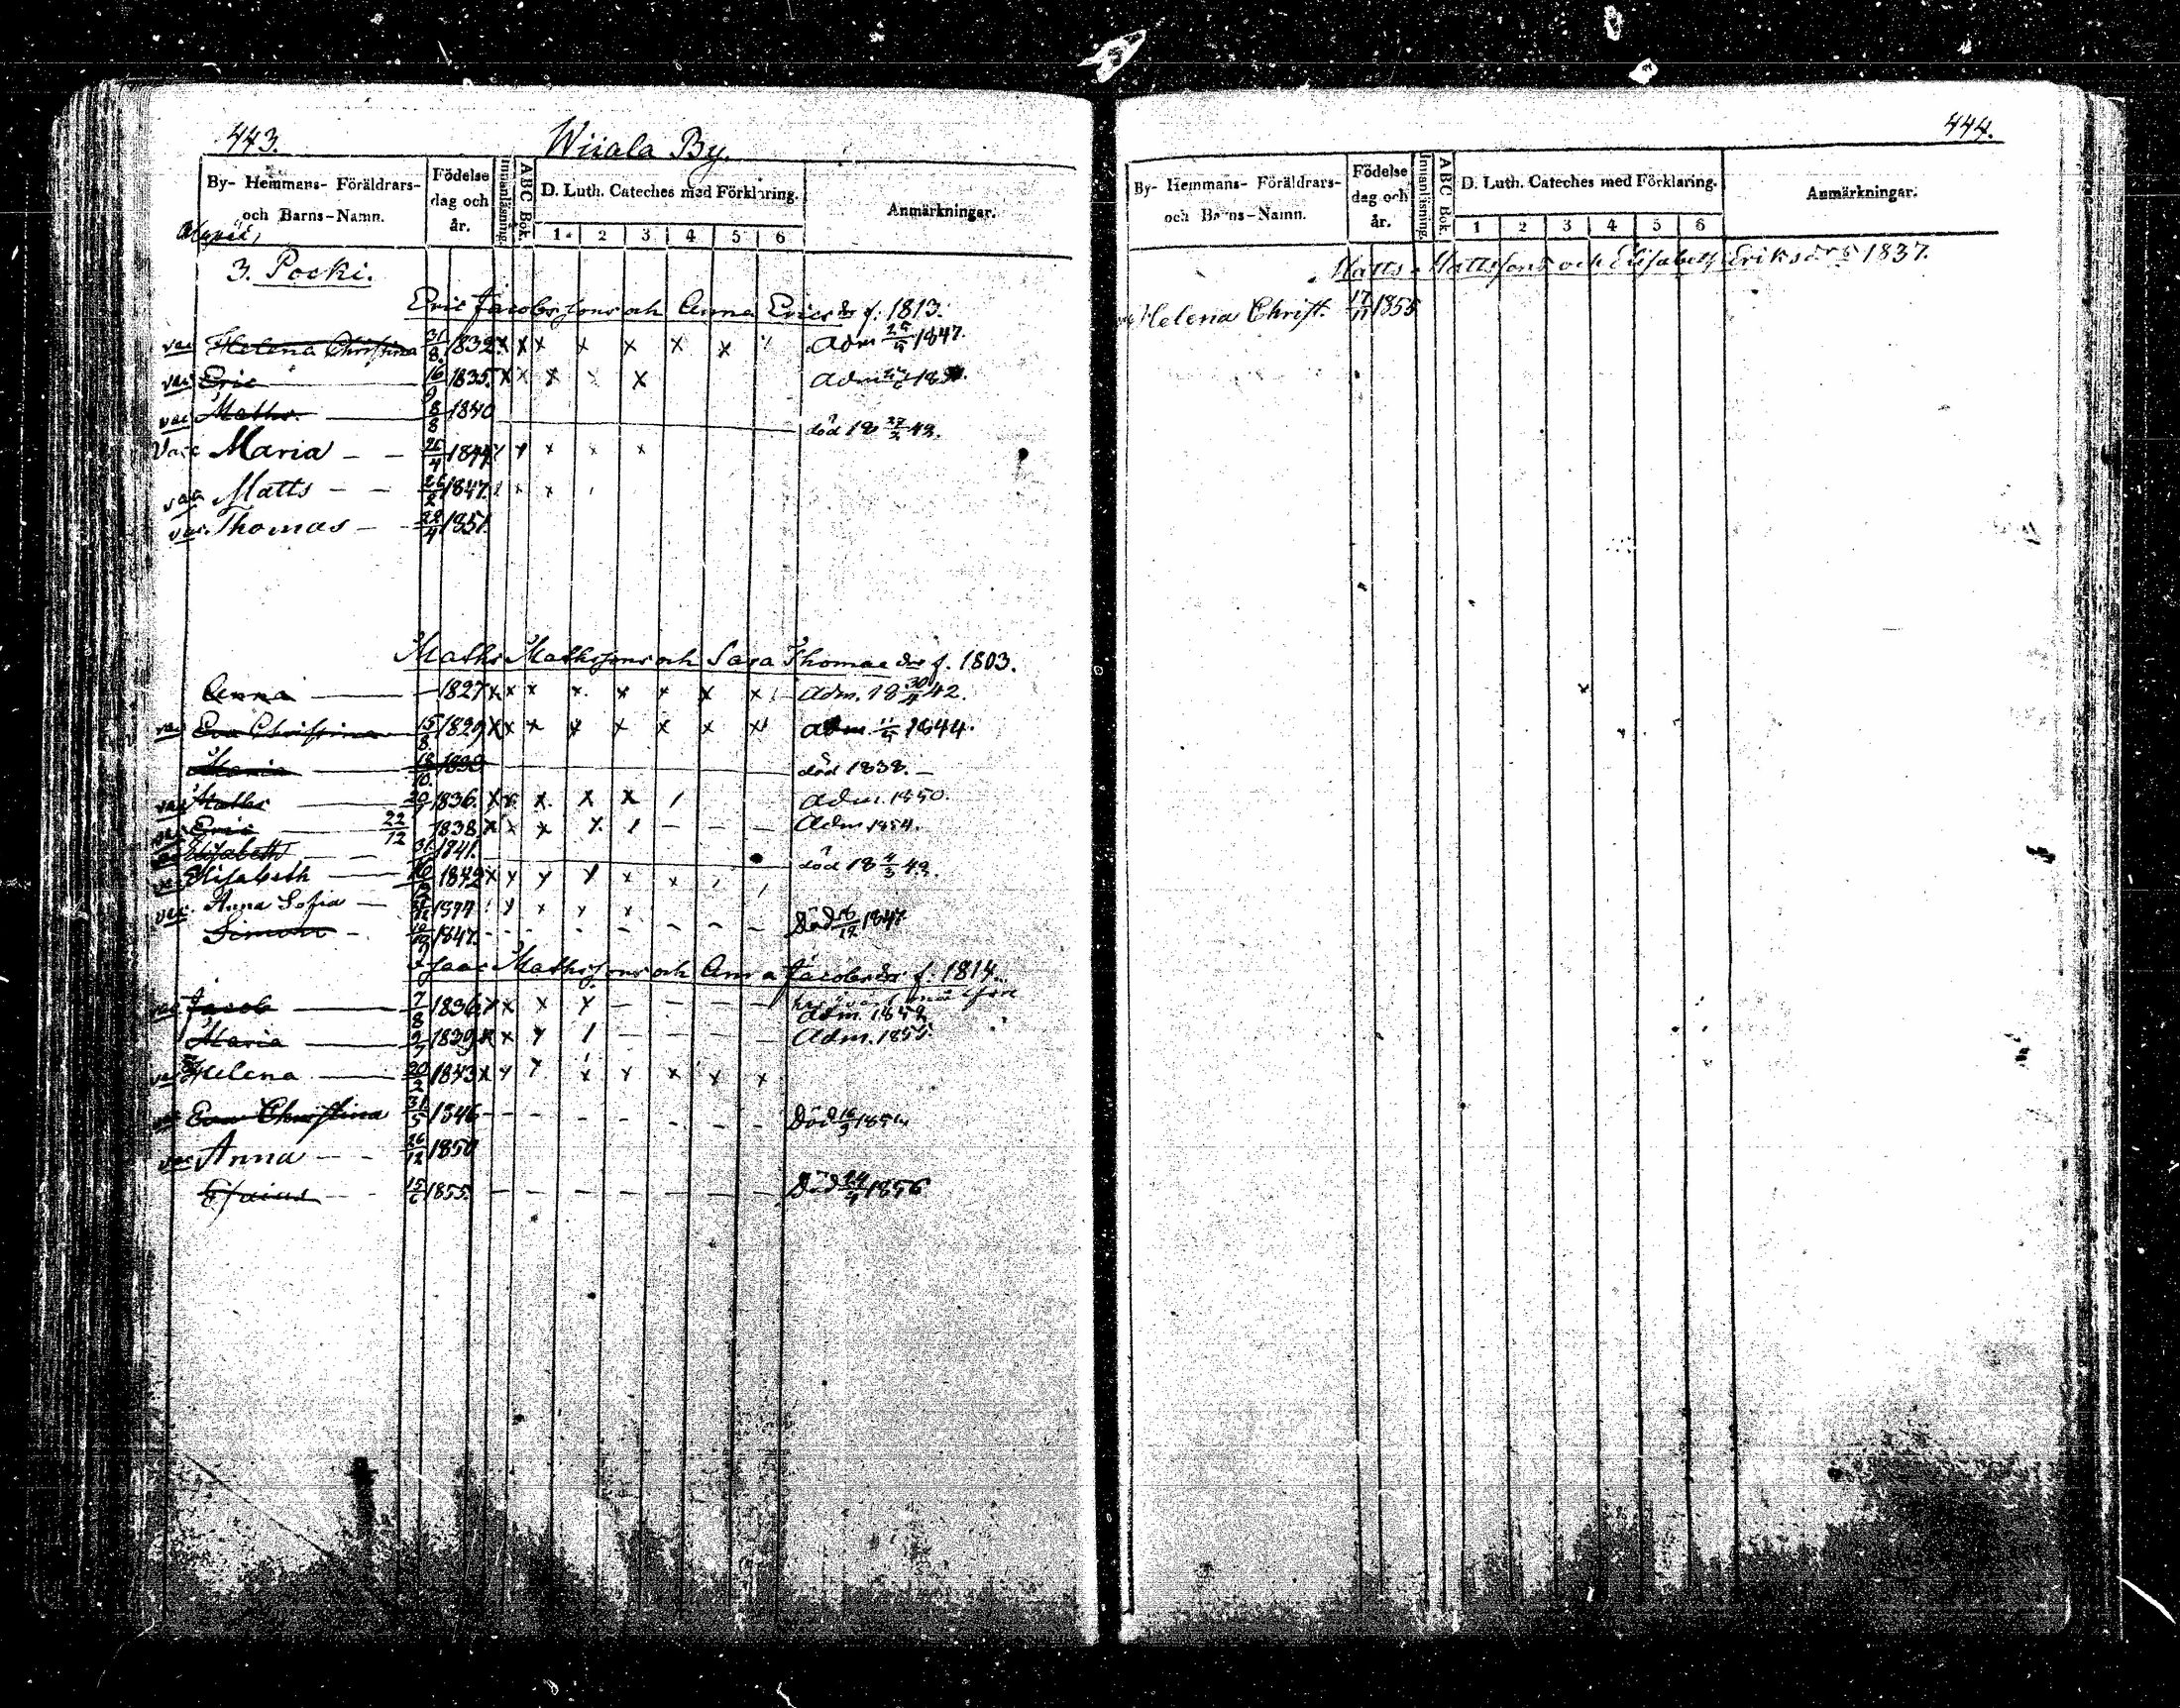 443.
Wiiala By.
By- Hemmans- Föräldrars- och Barns-Namn.
Födelse dag och år.
Innanläsning.
ABC Bok.
D. Luth. Cateches med Förklaring.
1 2 3 4 5 6
Anmärkningar.
3. Pocki.
Eric Jacobssons och Anna Ericsdr f. 1813.
vac Helena Christina 31/8 1832 x x x x x x x Adm 1847.
vac Eric 16/9 1835 x x x x x Adm
vac Maths. 8/8 1840 död 18 27/2 43.
Vacc Maria - - 25/4 1844 x x x x
vac Matts - - 26/2 1847. x x
vac. Thomas - 22/4 1851.
Maths Mathssons och Sara Thomae dr f. 1803.
Anna 1827 x x x x x x x x Adm. 18 30/4 42.
vac Eva Christina 15/8 1829 x x x x x x x x Adm. 1844.
Maria 18/10 död 1838.
vac Maths 1836. x x x x x Adm. 1850.
vac Eric 22/12 1838. x x x x Adm 1854.
vac Elisabeth - - 31 1841. död 18 4/3 43.
vac Elisabeth 1842 x x x x x x
vac. Anna Sofia x x x x
Simon - 1847. Död 16/12 1847.
Isaac Mathssons och Anna Jacobsdr f. 1814.
vac Jacob 7/8 1836 x x x x - - - -
Adm. 1852
Maria 1839 x x x - - - - Adm. 1855
vac Helena 20/2 1843 x x x x x x x x
vac Eva Christina 31/5 1846 - - - - - - Död
vac Anna - - 26/12 1850
Esaias - - 15/6 1855 - - - - - - Död 24/4 1856
444.
By- Hemmans- Föräldrars- och Barns-Namn.
Födelse dag och år.
Innanläsning.
ABC Bok.
D. Luth. Cateches med Förklaring.
1 2 3 4 5 6
Anmärkningar.
Matts Mattssons och Elisabeth Eriksdr f 1837.
Helena Christ. 17/11 1855